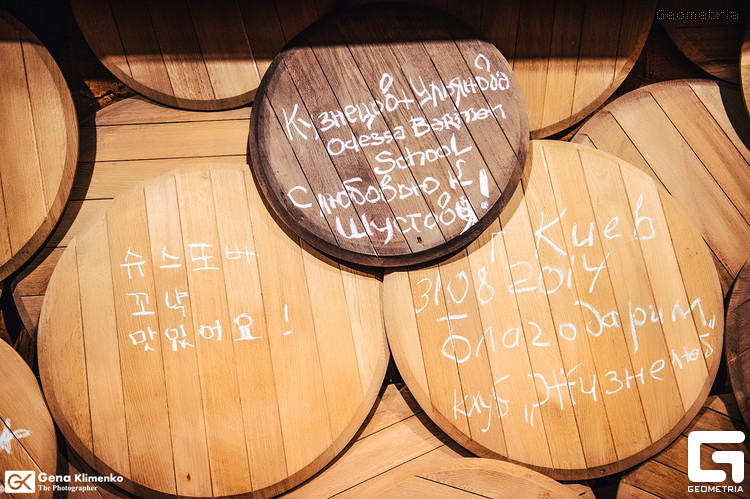 Geometria
Кузнецов+Ульянова
Odessa Bartden
School
С любовью к
Шустову!
슈스또바
꼬냑
맛있어요!
г Киев
31.08 2014
благодарим
клуб „Жизнелюб"
GK Gena Klimenko
The Photographer
GEOMETRIA